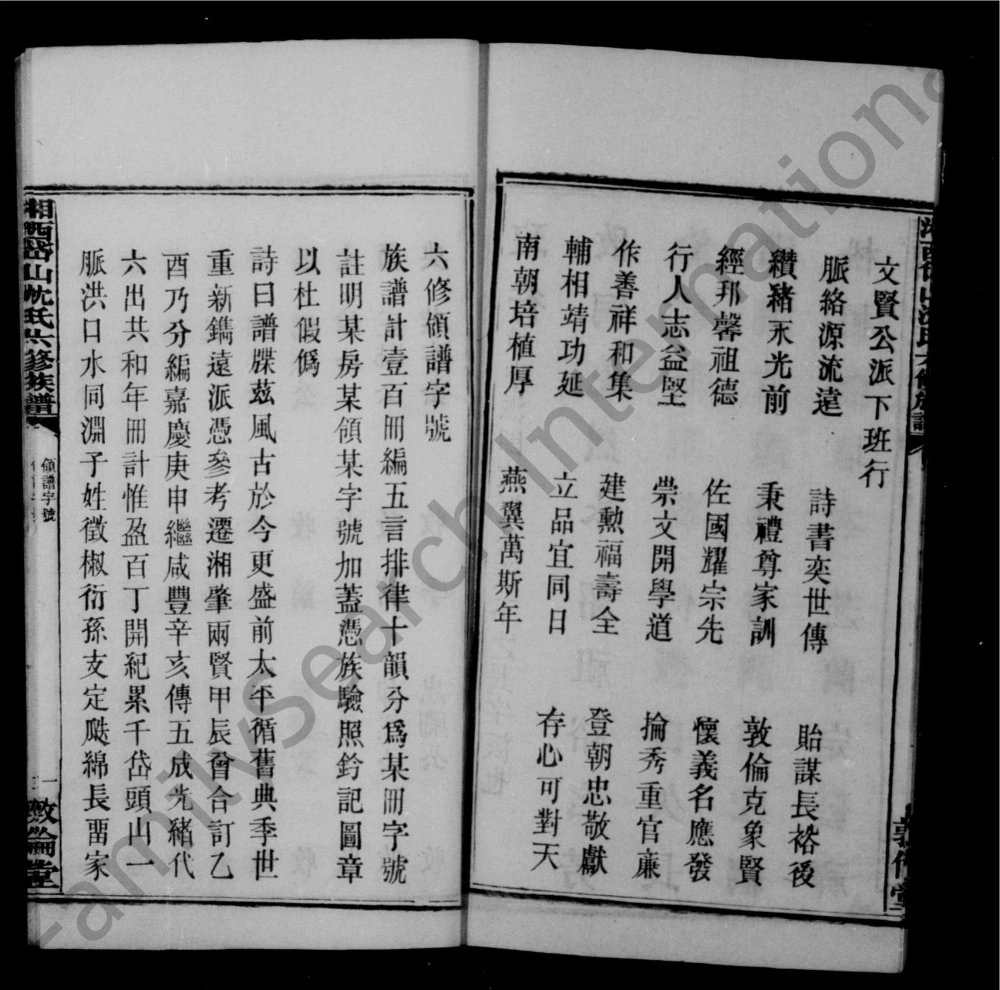 文賢公派下班行
脈絡源流遠 詩書奕世傳 貽謀長裕後
纘緒永光前 秉禮尊家訓 敦倫克象賢
經邦馨祖德 佐國耀宗先 懷義名應發
行人志益堅 崇文開學道 掄秀重官廉
作善祥和集 建勲福壽全 登朝忠敬獻
輔相靖功延 立品宜同日 存心可對天
南朝培植厚 燕翼萬斯年
六修領譜字號
族譜計壹百冊編五言排律十韻分爲某冊字號
註明某房某領某字號加葢憑族驗照鈐記圖章
以杜假僞
詩曰譜牒茲風古於今更盛前太平循舊典季世
重新鐫遠派憑參考遷湘肇兩賢甲辰曾合訂乙
酉乃分編嘉慶庚申繼咸豐辛亥傳五成光緒代
六出共和年冊計惟盈百丁開紀累千岱頭山一
脈洪口水同淵子姓徵椒衍孫支定瓞綿長畱家
湘西岱山沈氏六修族譜
領譜字號
一
三
敦倫堂
FamilySearch International